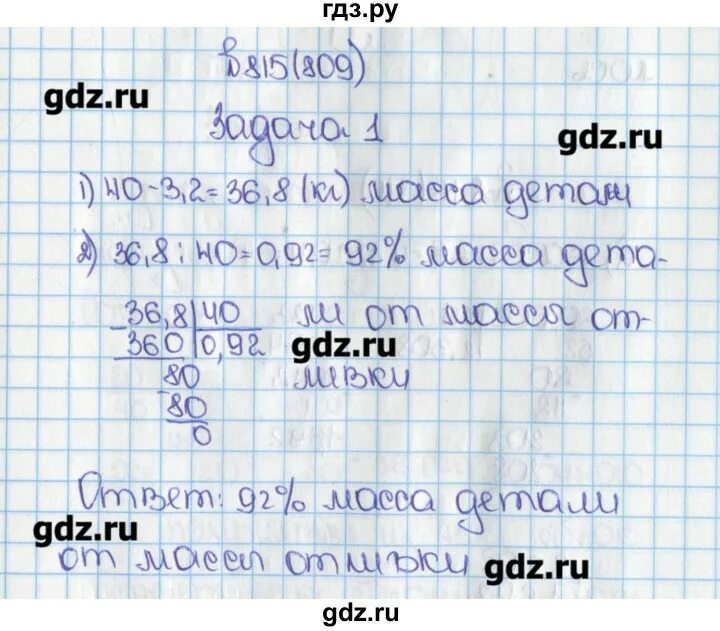 гдз.ру
№815(809)
gdz.ru
Задача 1
gdz.ru
1) 40-3,2=36,8(кг) масса детали
2) 36,8:40=0,92=92% масса дета-
-36,8|40 ли от массы от-
360|0,92 gdz.ru
80 ливки
-80
0
Ответ: 92% масса детали
gdz.ru
от массы отливки gdz.ru
gdz.ru